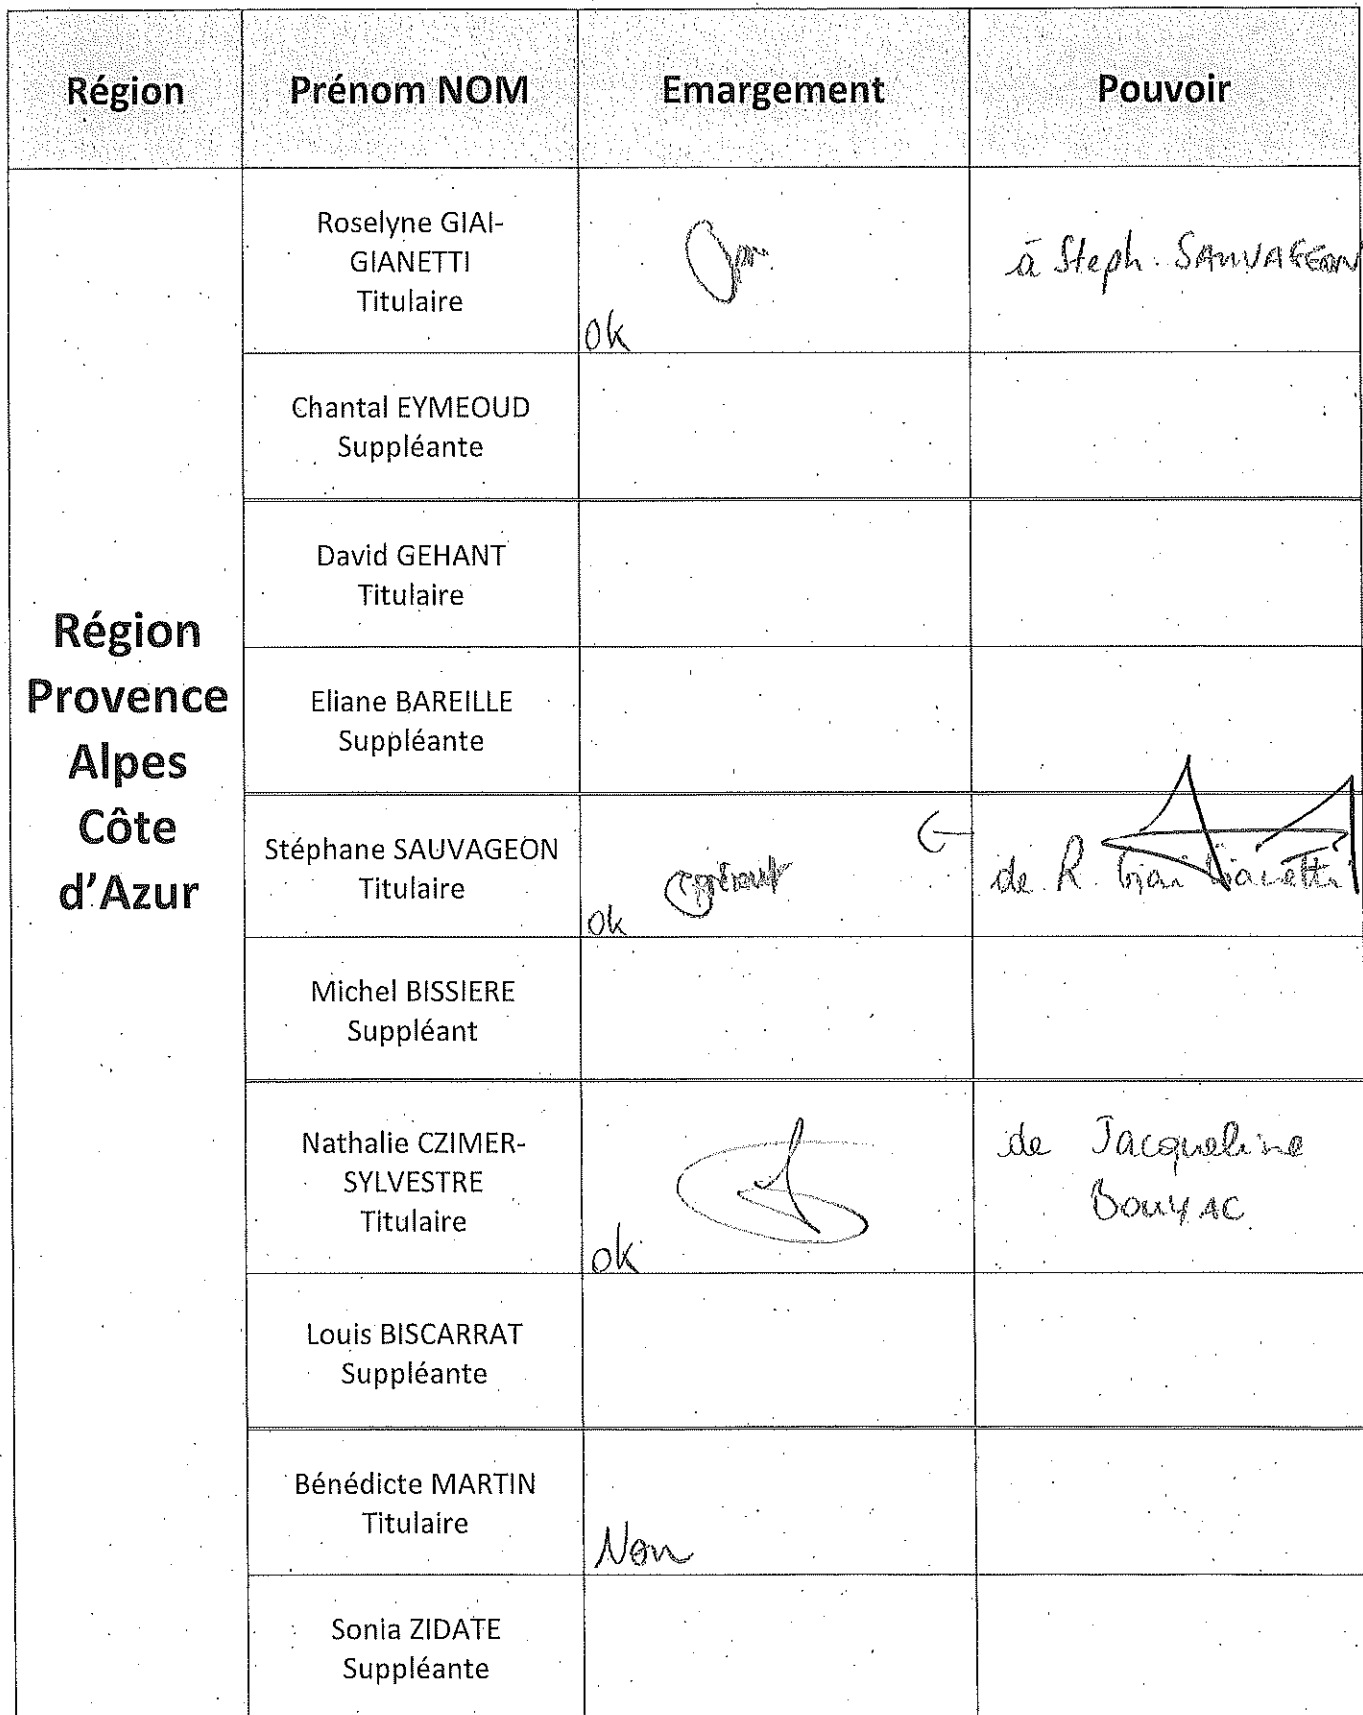 Région Prénom NOM Emargement Pouvoir
Région
Provence
Alpes
Côte
d'Azur
Roselyne GIAI-
GIANETTI
Titulaire
ok
à Steph. SAUVAGEON
Chantal EYMEOUD
Suppléante
David GEHANT
Titulaire
Eliane BAREILLE
Suppléante
Stéphane SAUVAGEON
Titulaire
ok
de R. Giai Gianetti
Michel BISSIERE
Suppléant
Nathalie CZIMER-
SYLVESTRE
Titulaire
ok
de Jacqueline
BOUYAC
Louis BISCARRAT
Suppléante
Bénédicte MARTIN
Titulaire
Non
Sonia ZIDATE
Suppléante